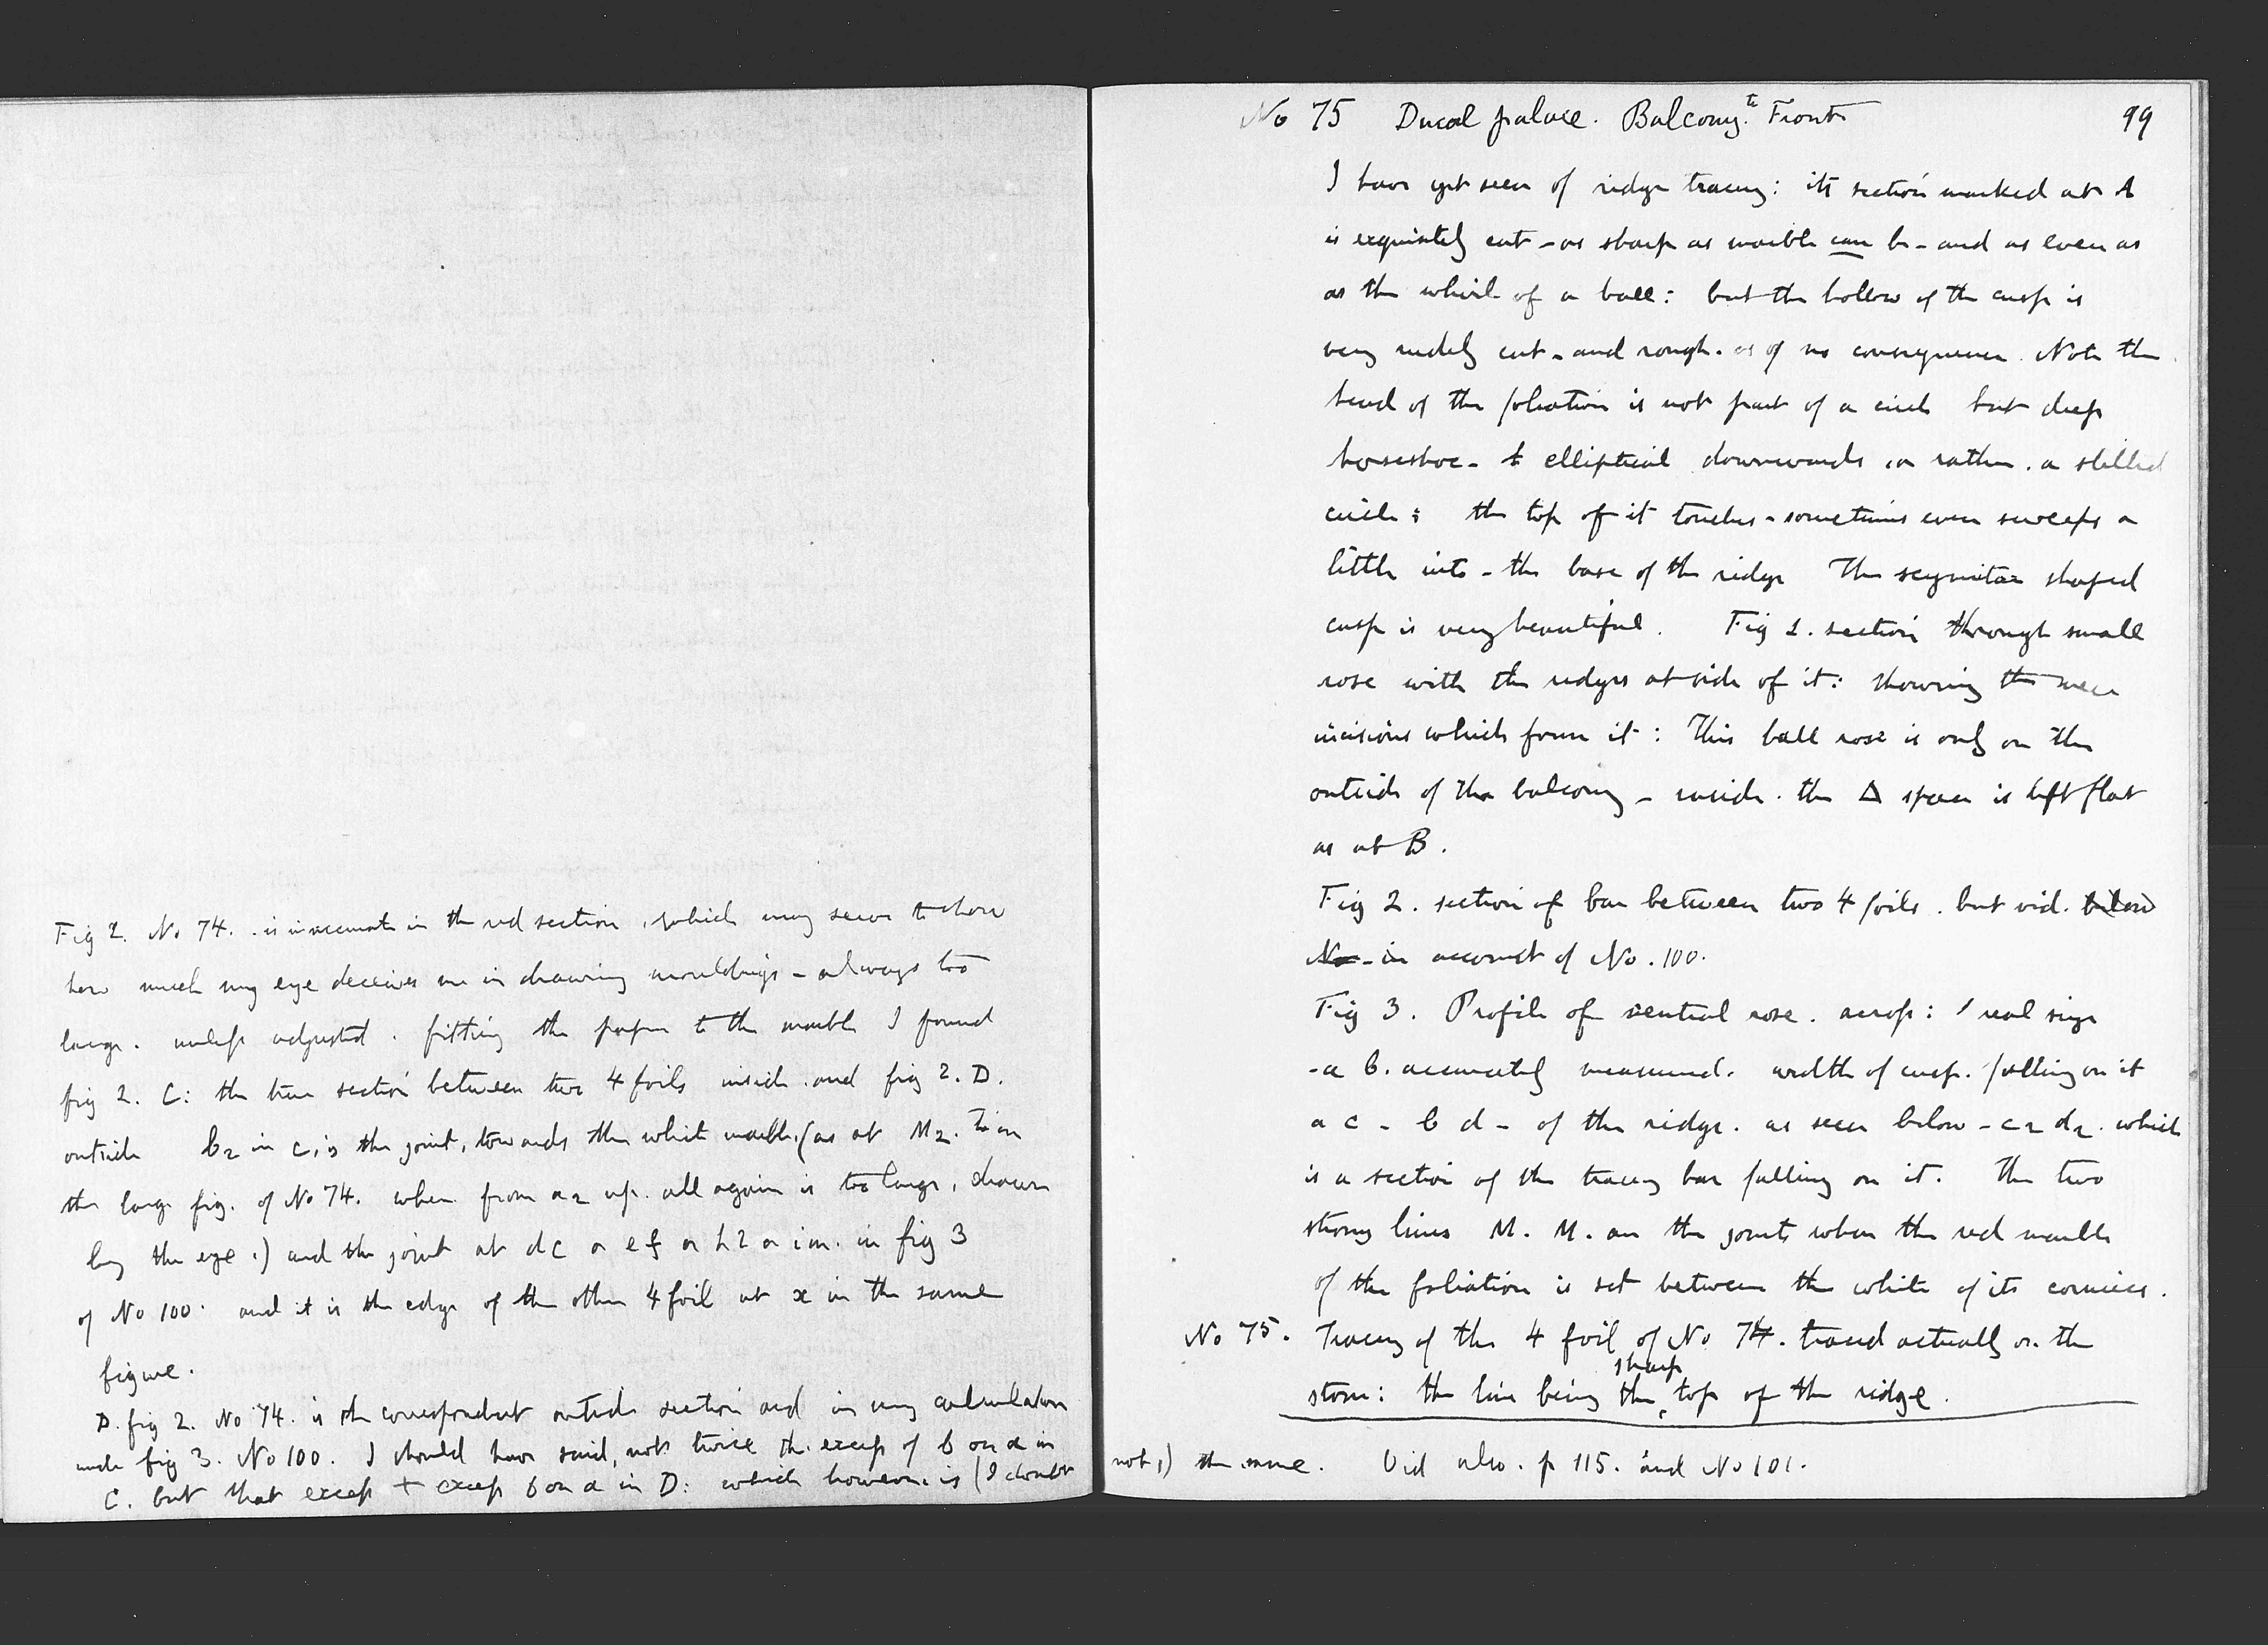 Fig 2. No 74. is inaccurate in the red section, which may serve to show
how much my eye deceives me in drawing mouldings - always too
large. unless adjusted. fitting the paper to the marble I found
fig 2. C: the true section between two 4 foils inside. and fig 2. D.
outside b2 in C, is the joint, towards the white marble. (as at M2. in
the large fig. of No 74. when from a2 up. all again is too large, drawn
by the eye.) and the joint at dc or ef or h2 or im. in fig 3
of No 100. and it is the edge of the other 4 foil at x in the same
figure.
D. fig 2. No 74. is the correspondent outside section and in my calculation
under fig 3. No 100. I should have said, not twice the excess of b on a in
C. but that excess + excess b on a in D: which however is (I doubt
not,) the same. Vid also. p 115. and No 101.
No 75 Ducal palace. Balcony. Front 99
I have yet seen of ridge tracery: its section marked at A
is exquisitely cut - as sharp as marble can be - and as even as
as the whirl of a ball: but the hollow of the cusp is
very rudely cut - and rough. as of no consequence. Note the
head of the foliation is not part of a circle but deep
horseshoe - elliptical downwards or rather. a stilted
circle: the top of it touches - sometimes even sweeps a
little into - the base of the ridge The scymitar shaped
cusp is very beautiful. Fig 1. section through small
rose with the ridges at side of it: showing the mere
incisions which form it: This ball rose is only on the
outside of the balcony - inside. the Δ space is left flat
as at B.
Fig 2. section of bar between two 4 foils. but vid. below
No - in account of No. 100.
Fig 3. Profile of central rose. across: real size
- a b. accurately measured. width of cusp. falling on it
a c - b d - of the ridge. as seen below - c2 d2. which
is a section of the tracery bar falling on it. The two
strong lines M. M. are the joints where the red marble
of the foliation is set between the white of its cornices.
No 75. Tracery of the 4 foil of No 74. traced actually on the
stone: the line being the sharp top of the ridge.